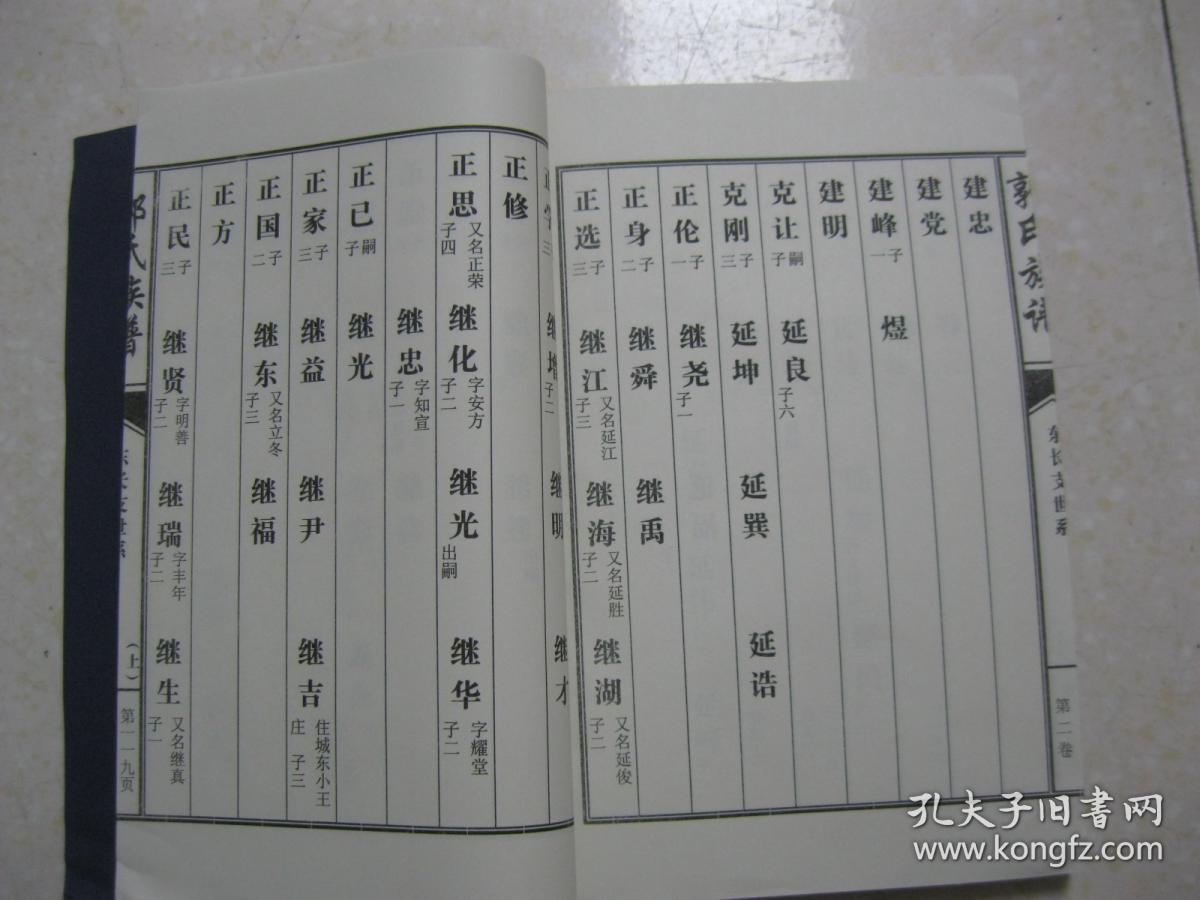 郭氏族谱
东长支世系
第二卷
建忠
建党
建峰 子一 煜
建明
克让 嗣子 延良 子六
克刚 子三 延坤 延巽 延诰
正伦 子一 继尧 子一
正身 子二 继舜 继禹
正选 子三 继江 又名延江 子三 继海 又名延胜 子二 继湖 又名延俊 子二
正 三 继增 子二 继明 继才
正修
正思 又名正荣 子四 继化 字安方 子二 继光 出嗣 继华 字耀堂 子二
继忠 字知宣 子一
正已 嗣子 继光
正家 子三 继益 继尹 继吉 住城东小王庄 子三
正国 子二 继东 又名立冬 子三 继福
正方
正民 子三 继贤 字明善 子二 继瑞 字丰年 子二 继生 又名继真 子一
氏族谱
东长支世系
（上）
第一一九页
孔夫子旧书网
www.kongfz.com